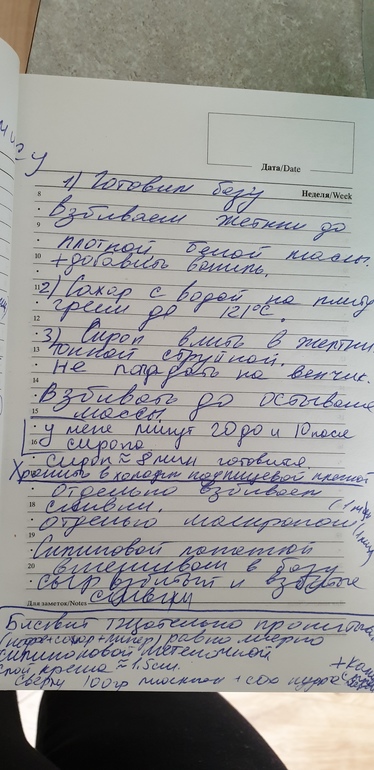 Дата/Date
Неделя/Week
1) Готовим базу
8
Взбиваем желтки до
9
плотной белой массы.
10
+ добавить ваниль.
11
2) Сахар с водой на плиту
греем до 121°С.
12
3) Сироп влить в желтки
13
тонкой струйкой.
Не попадать на венчик.
14
Взбивать до остывания
15
массы
У меня минут 20 до и 10 после
16
сиропа
Сироп ≈ 8 мин готовится
Хранить в холод под пищевой пленкой
Отдельно взбиваем
18
сливки.
Отдельно маскарпоне
19
Силиконовой лопаткой
20
вмешиваем в базу
сыр взбитый и взбитые
Для заметок/Notes
сливки
Бисквит тщательно
(кофе+сахар+ликер) равномерно
силиконовой
слой крема ≈ 1.5см.
сверху 100гр + пудра